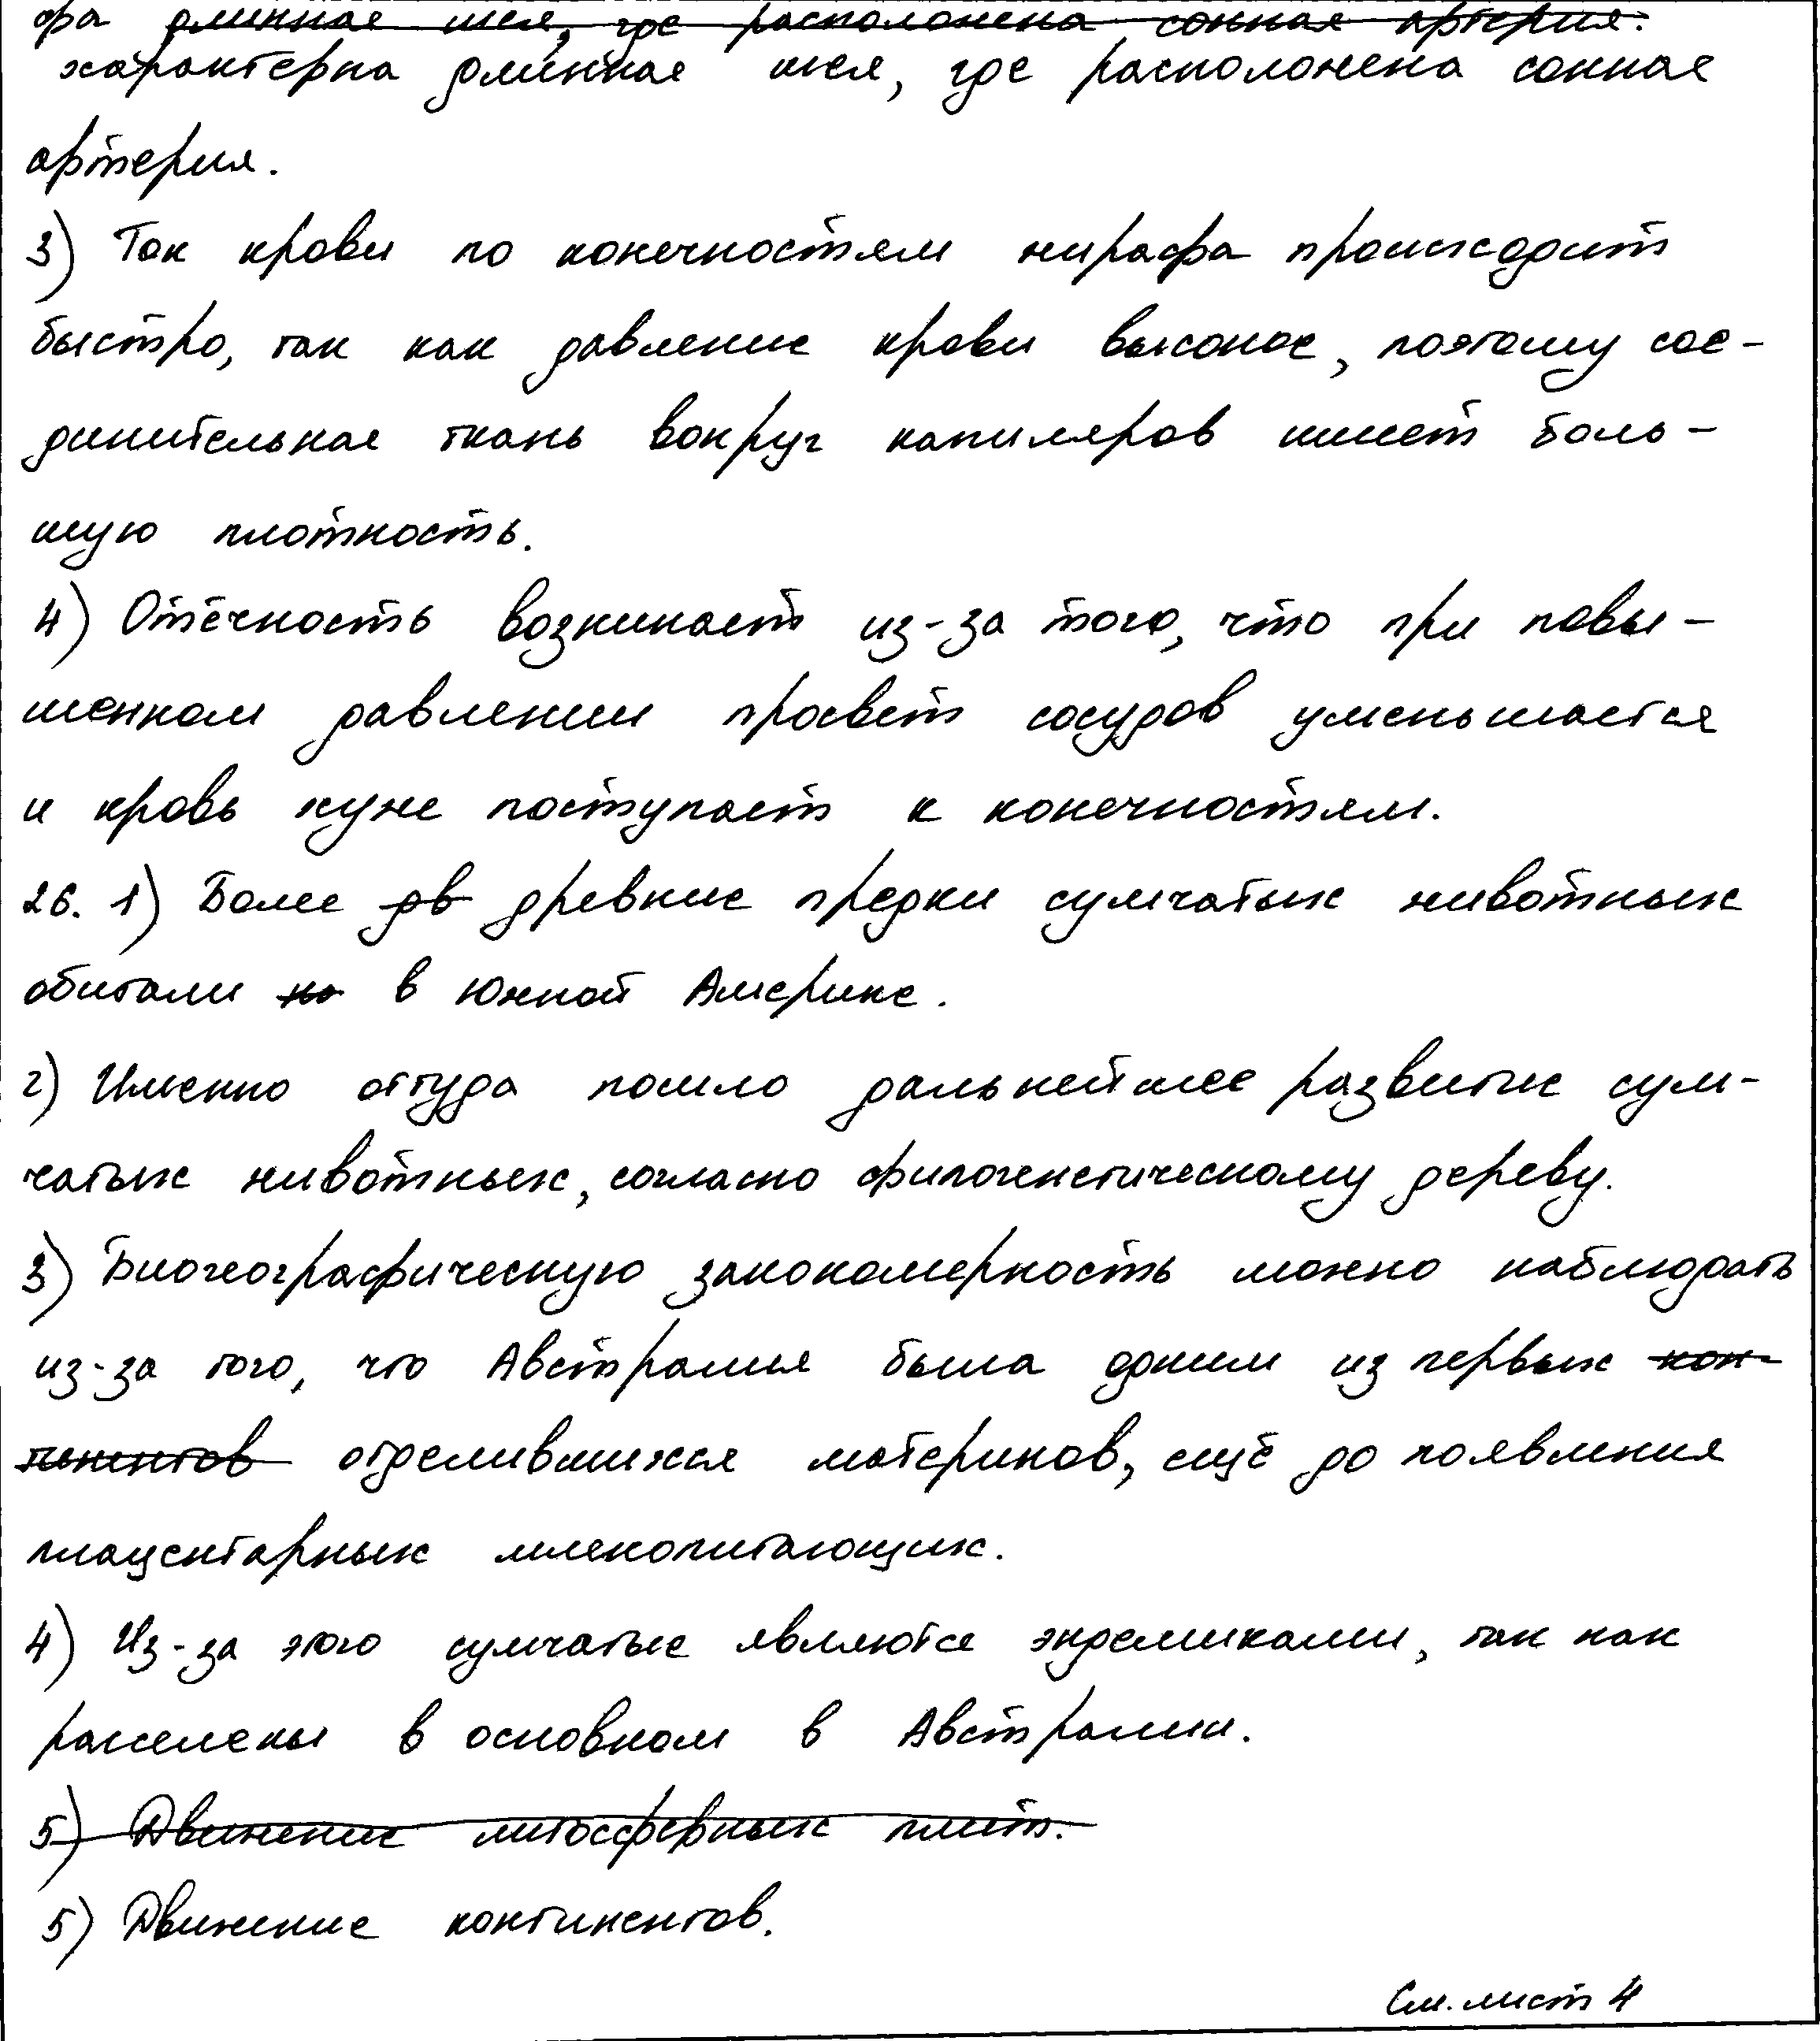 фа длинная шея, где расположена сонная артерия.
характерна длинная шея, где расположена сонная
артерия.
3) Ток крови по конечностям жирафа происходит
быстро, так как давление крови высокое, поэтому сое-
динительная ткань вокруг капиляров имеет боль-
шую плотность.
4) Отёчность возникает из-за того, что при повы-
шенном давлении просвет сосудов уменьшается
и кровь хуже поступает к конечностям.
26. 1) Более дв древние предки сумчатых животных
обитали на в Южной Америке.
2) Именно оттуда пошло дальнейшее развитие сум-
чатых животных, согласно филогенетическому дереву.
3) Биогеографическую закономерность можно наблюдать
из-за того, что Австралия была одним из первых кон-
тинентов отделившихся материков, ещё до появления
плацентарных млекопитающих.
4) Из-за этого сумчатые являются эндемиками, так как
расселены в основном в Австралии.
5) Движение литосферных плит.
5) Движение континентов.
См. лист 4